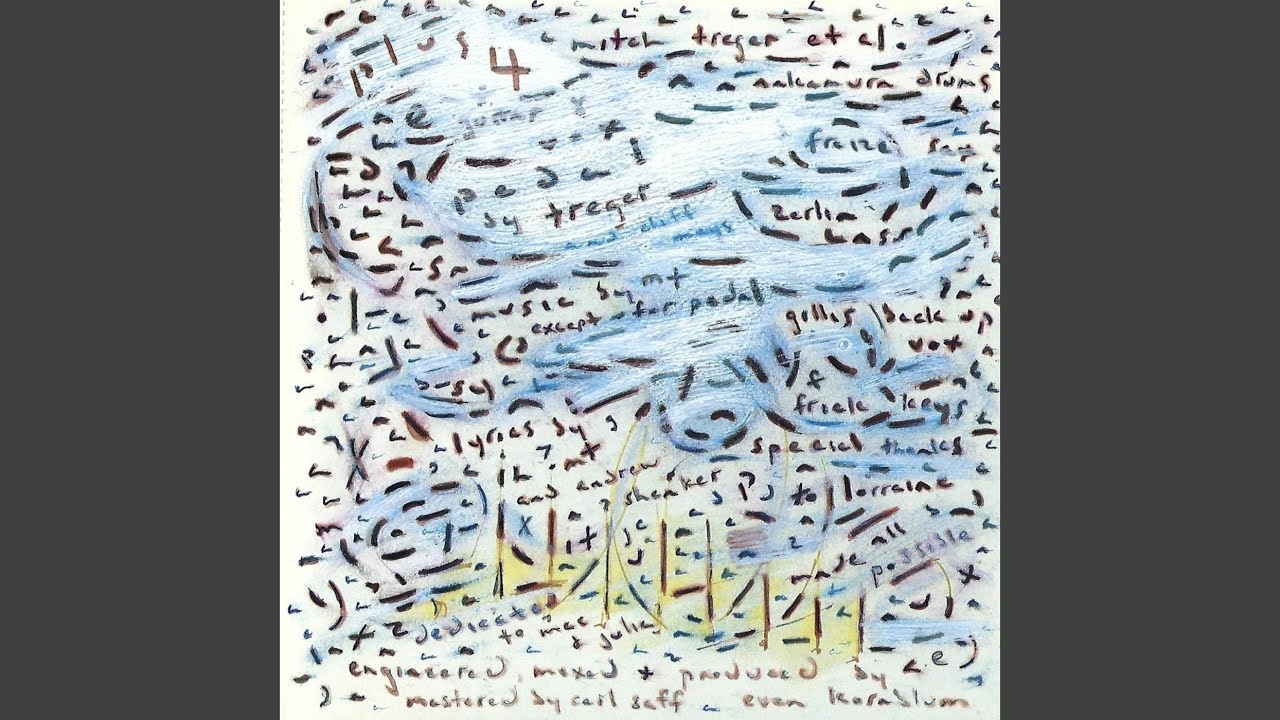 plus 4
mitch treger et al.
nakamura drums
guitar
vox
fraize sax
pedal
by treger
and cliff
mays
zerlin
bass
music by mt
except for pedal
gillis back up
vox
frick keys
lyrics by
mt
and andrew
shenker
special thanks
to lorraine
made all
possible
dedicated
to mae
& julia
engineered, mixed + produced by
mastered by carl saff even kornblum